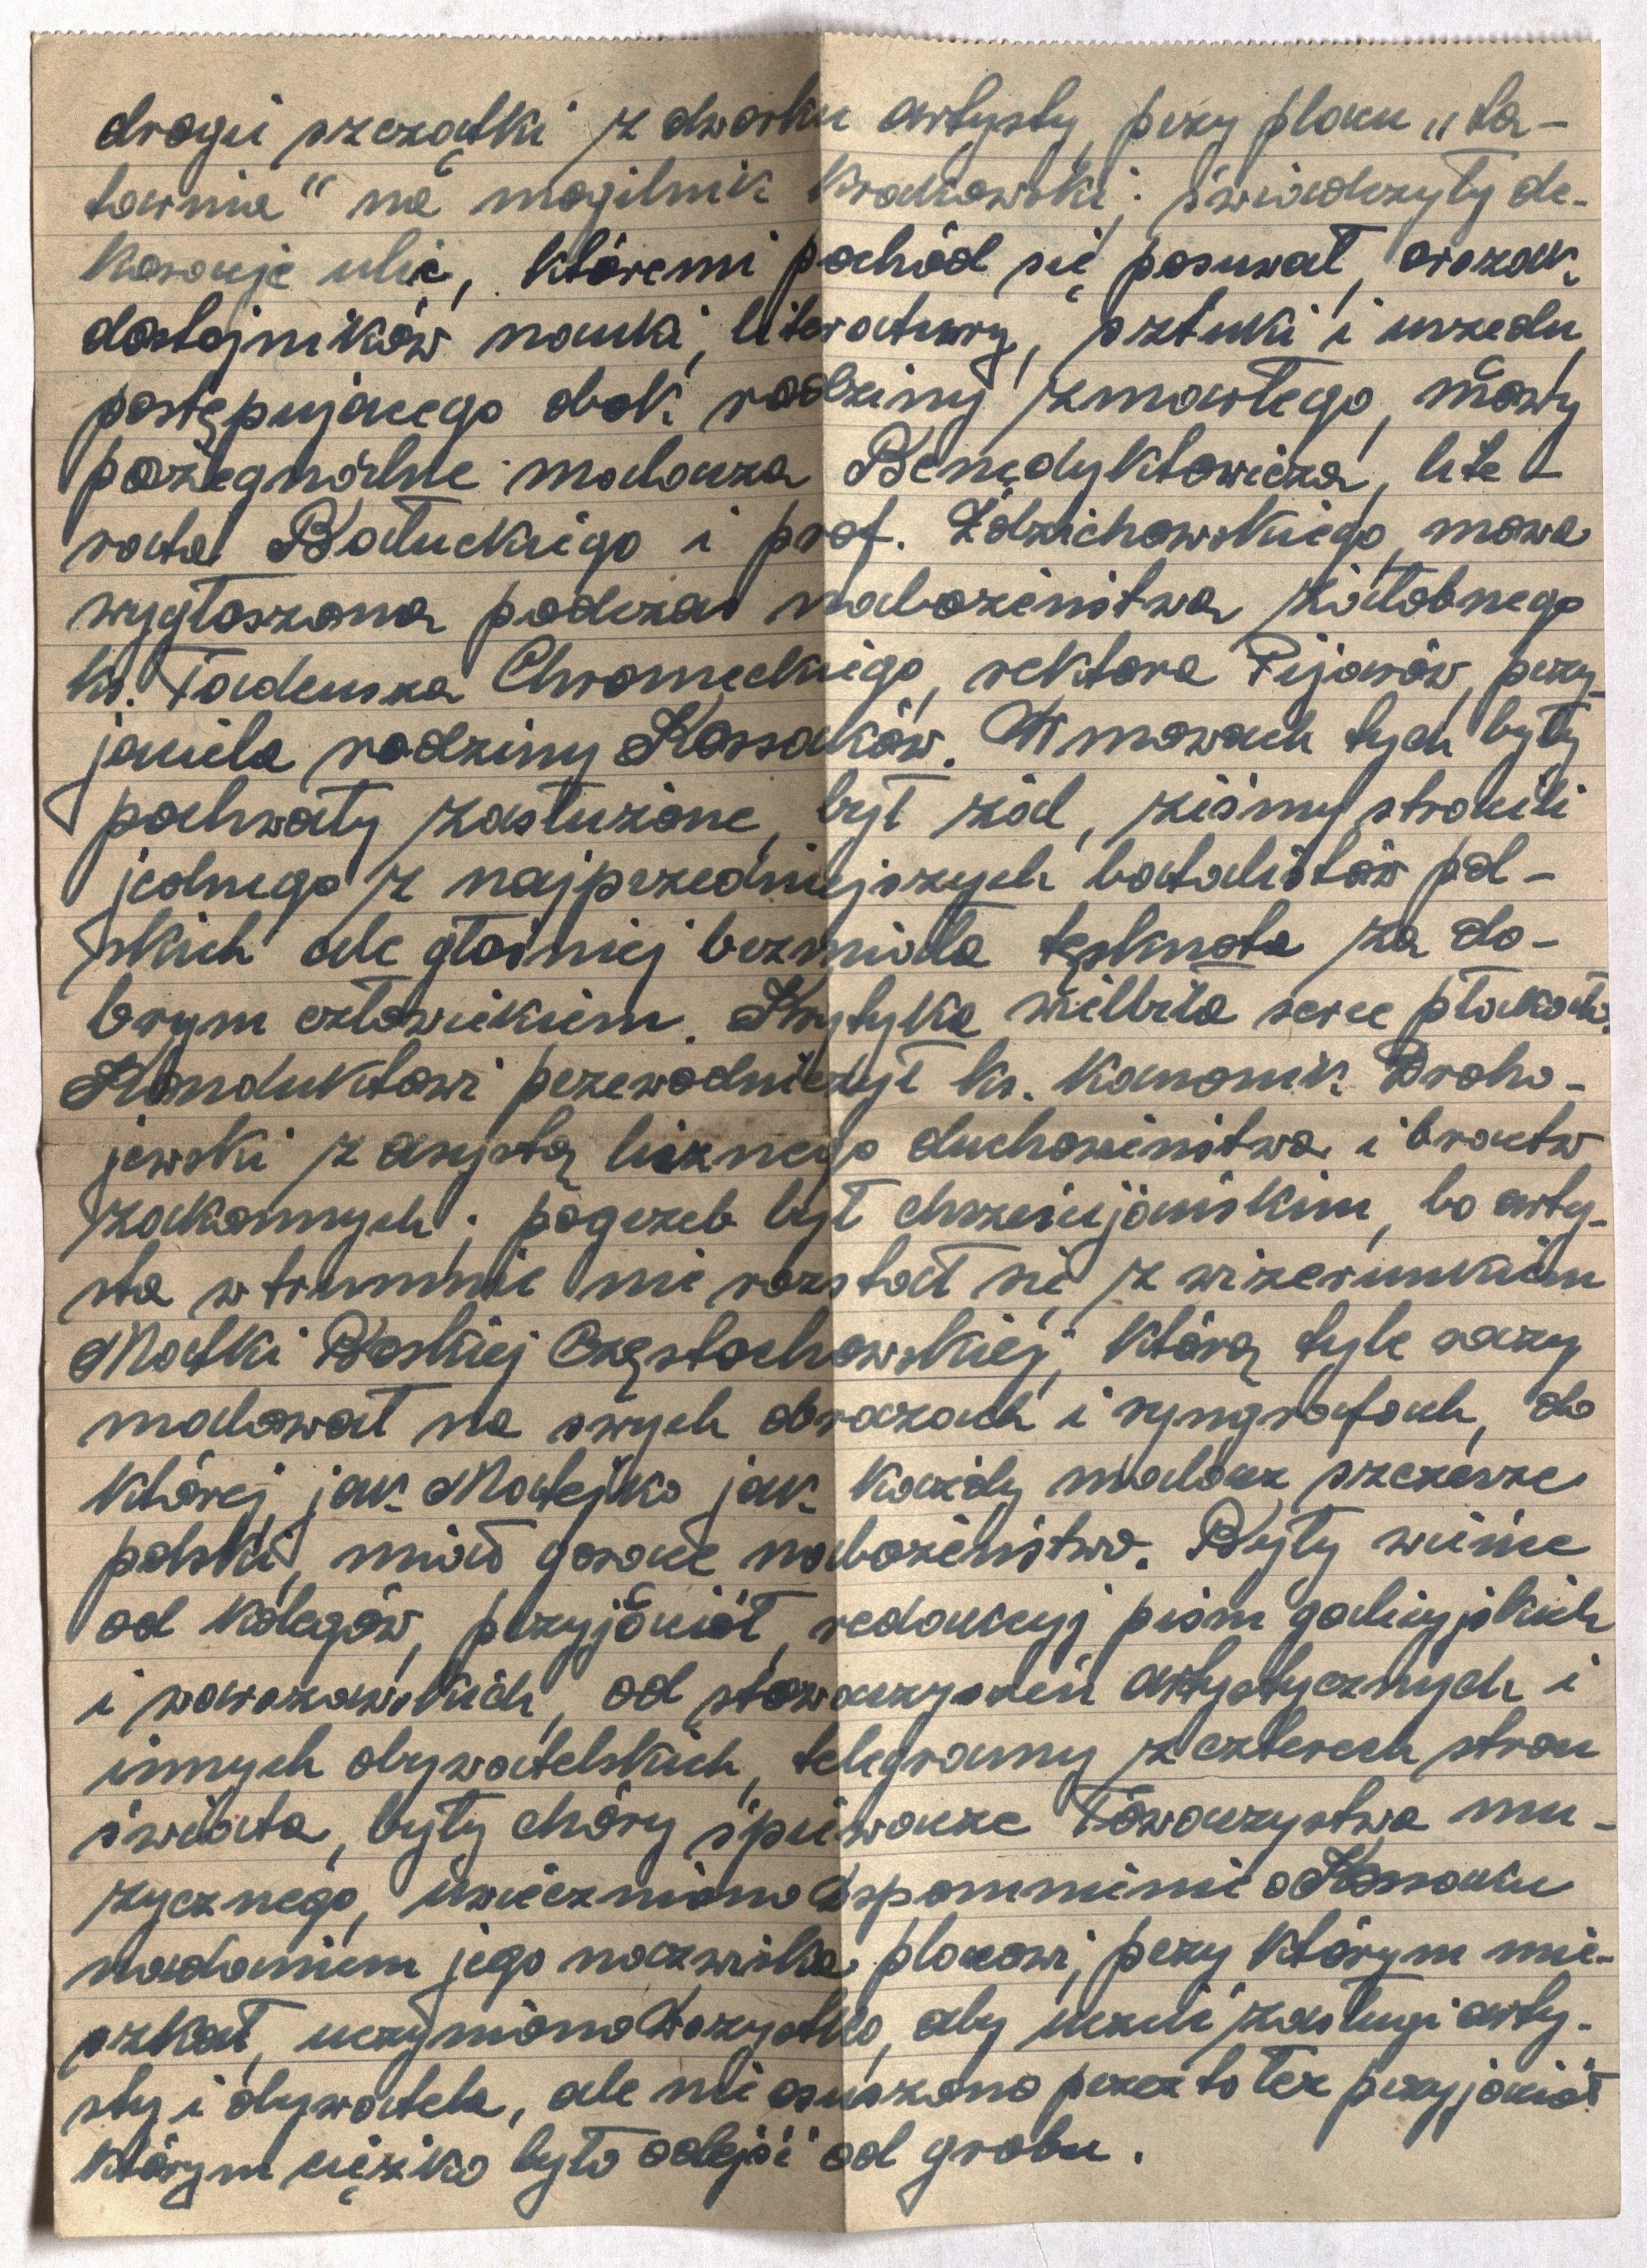 drogie szczątki z dworku artysty, przy placu „La-
tarnia" na mogilnik krakowski; świadczyły de-
koracje ulic, któremi pochód się posuwał, orszak
dostojników nauki, literatury, sztuki i urzędu,
postępującego obok rodziny zmarłego, mowy
pożegnalne malarza Benedyktowicza, lite-
rata Bałuckiego i prof. Zdziechowskiego, mowa
wygłoszona podczas nabożeństwa żałobnego
ks. Tadeusza Chromeckiego, rektora Pijarów, przy-
jaciela rodziny Kossaków. W mowach tych były
pochwały zasłużone, był żal, żeśmy stracili
jednego z najprzedniejszych batalistów pol-
skich ale głośniej brzmiała tęsknota za do-
brym człowiekiem. Krytyka wielbiła serce płakało.
Konduktowi przewodniczył ks. kanonik Droho-
jewski z asystą licznego duchowieństwa i bractw
zakonnych; pogrzeb był chrześcijańskim, bo arty-
sta w trumnie nie rozstał się z wizerunkiem
Matki Boskiej Częstochowskiej, którą tyle razy
malował na swych obrazach i ryngrafach, do
której jak Matejko jak każdy malarz szczerze
polski, miał gorące nabożeństwo. Były wieńce
od kolegów, przyjaciół, redakcyj pism galicyjskich
i warszawskich, od stowarzyszeń artystycznych i
innych obywatelskich, telegramy z czterech stron
świata, były chóry śpiewacze Towarzystwa mu-
zycznego, uwieczniono wspomnienie o Kossaku
nadaniem jego nazwiska placowi, przy którym mie-
szkał, uczyniono wszystko, aby uczcić zasługi arty-
sty i obywatela, ale nie osuszono przez to łez przyjaciół
którym ciężko było odejść od grobu.